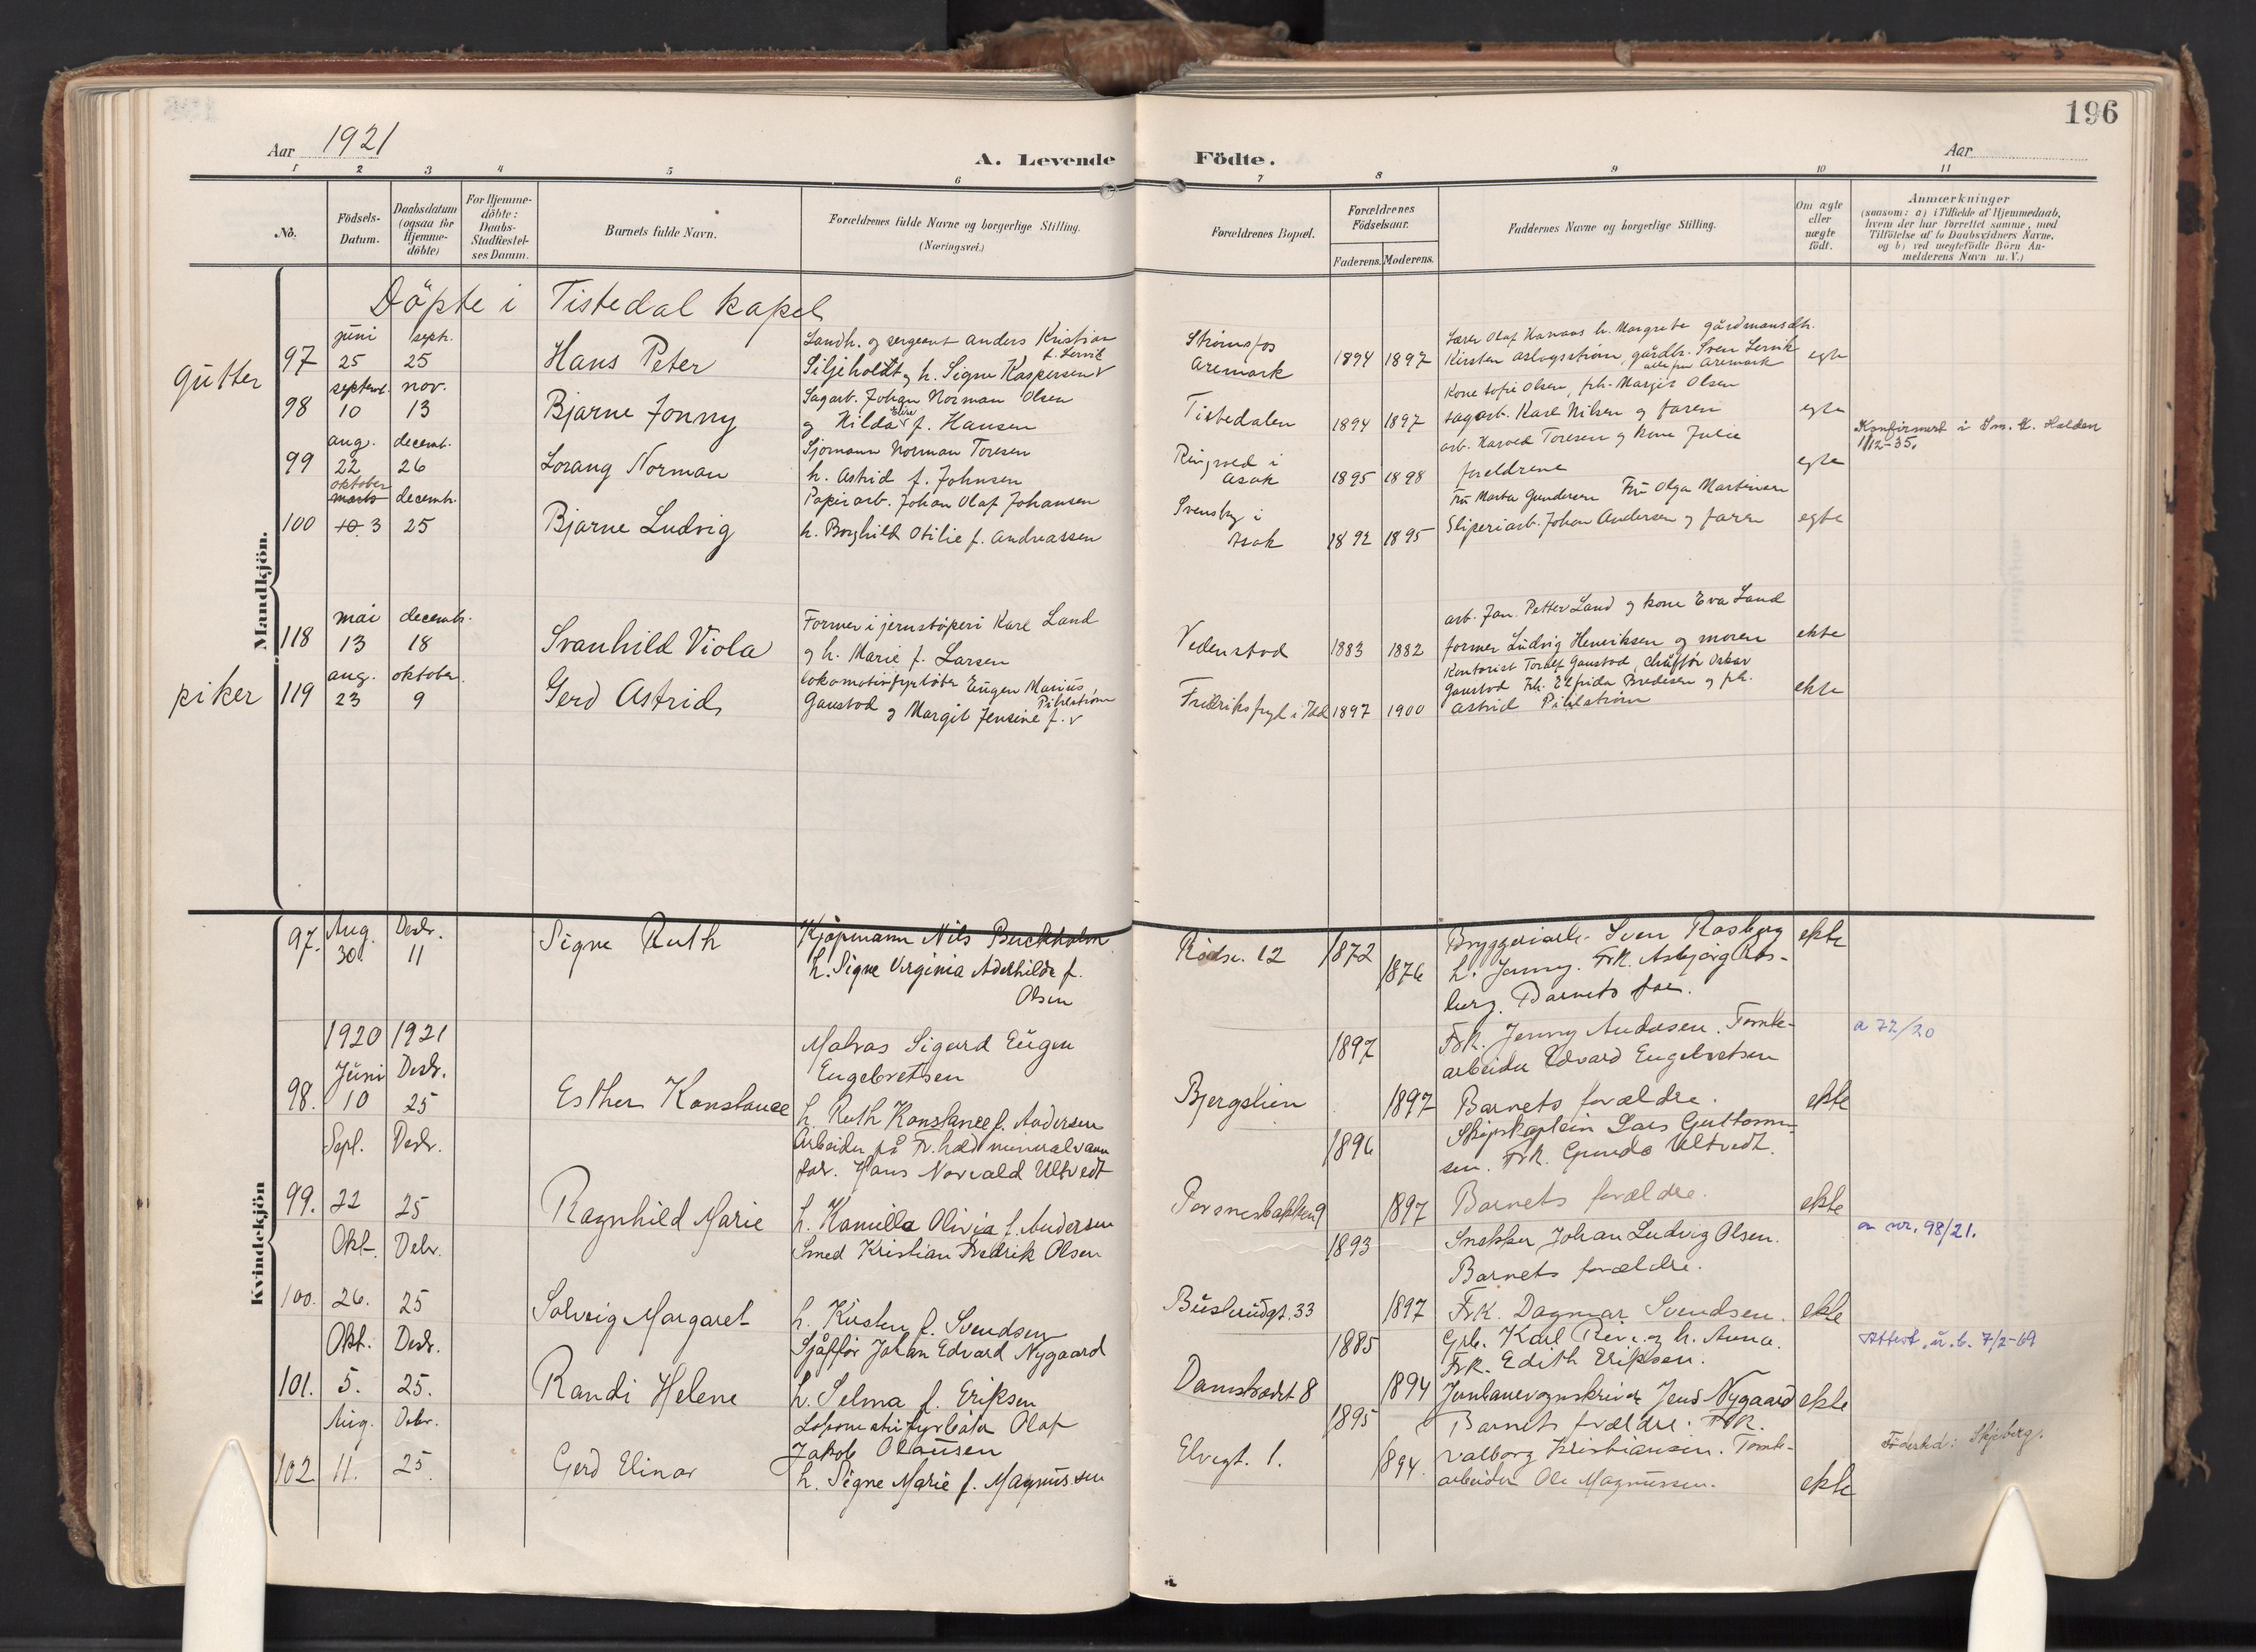 196
Aar 1921
A. Levende Födte.
Aar
1 2 3 4 5 6 7 8 9 10 11
No.
Födsels-
Datum.
Daabsdatum
(ogsaa for
Hjemme-
döbte)
For Hjemme-
döbte:
Daabs-
Stadfæstel-
ses Datum.
Barnets fulde Navn.
Forældrenes fulde Navne og borgerlige Stilling.
(Næringsvei.)
Forældrenes Bopæl.
Forældrenes
Födselsaar.
Faderens. Moderens.
Faddernes Navne og borgerlige Stilling.
Om ægte
eller
uægte
födt.
Anmærkninger
(saasom: a) i Tilfælde af Hjemmedaab,
hvem der har forrettet samme, med
Tilföielse af to Daabsvidners Navne,
og b) ved uægtefödte Börn An-
melderens Navn m. V.)
Döpte i Tistedal kapel
Mandkjön.
gutter
97
juni sept.
25 25
Hans Peter
Landh. og sergeant Anders Kristian
Siljeholdt og h. Signe Kaspersen
f. Lervik
Strømsfos
Aremark
1894 1897
Lærer Olaf h. Margrete gårdmansdtr.
Kirsten Aslagsstrøm, gårdbr. Sven Lervik
alle fra Aremark
egte
98
septemb. nov.
10 13
Bjarne Jonny
Sagarb. Johan Norman Olsen
og Hilda Elise f. Hansen
Tistedalen
1894 1897
Kone Sofie Olsen, frk. Margit Olsen
sagarb. Karl Nilsen og faren
egte
Konfirmert i Im. k. Halden
1/12-35.
99
aug. decemb.
22 26
Lorang Norman
Sjömann Norman Toresen
h. Astrid f. Johnsen
i
Asak
1895 1898
arb. Harald Toresen og kone Julie
foreldrene
egte
100
oktober
marts decemb.
10. 3 25
Bjarne Ludvig
Papirarb. Johan Olaf Johansen
h. Borghild Otilie f. Andreassen
Svensby i
Asak
1892 1895
Fru Marta Gundersen Fru Olga Martinsen
Sliperiarb. Johan Andersen og faren
egte
118
mai decemb.
13 18
Svanhild Viola
Former i jernstöperi Karl Land
og h. Marie f. Larsen
Vedenstad
1883 1882
arb. Jan Petter Land og kone Eva Land
former Ludvig Henriksen og moren
ekte
piker
119
aug. oktober.
23 9
Gerd Astrid
Lokomotivfyrböter Eugen Marius
Gaustad og Margit Jensine f.
Pihlstrøm
Fredriksfryd i Idd
1897 1900
Kontorist Torleif Gaustad, chåffør Oskar
Gaustad Frk. Elfrida Bredesen og frk.
Astrid Pihlstrøm
ekte
Kvindekjön
97.
Aug. Desbr.
30. 11
Signe Ruth
Kjøpmann Nils Buckholm
h. Signe Virginia Aderhilda f.
Olsen
Rödsv. 12
1872
1876
Bryggeriarb. Sven Rosberg
h. Jenny. Frk. Asbjørg Ros-
berg. Barnets far.
ekte
1920 1921
98.
Juni Desbr.
10 25
Esther Konstance
Matros Sigurd Eugen
Engebretsen
h. Ruth Konstance f. Andersen
Bjergstien
1897
1897
Frk. Jenny Andersen. Tomte-
arbeider Edvard Engebretsen
Barnets forældre.
ekte
a 72/20
99.
Sept. Desbr.
22 25
Ragnhild Marie
Arbeider på Fr.hald mineralvann
fabr. Hans Norvald Ultvedt
h. Kamilla Olivia f. Andersen
Porsnesbakken 9
1896
1897
Skipskaptein Lars Guttorm-
sen. Frk. Gunda Ultvedt.
Barnets forældre.
ekte
100.
Okt. Debr.
26. 25
Solveig Margaret
Smed Kristian Fredrik Olsen
h. Kirsten f. Svendsen
Buskrudgt. 33
1893
1897
Snekker Johan Ludvig Olsen.
Barnets forældre.
Frk. Dagmar Svendsen.
ekte
a nr. 98/21.
101.
Okt. Desbr.
5. 25.
Randi Helene
Sjåffør Johan Edvard Nygaard
h. Selma f. Eriksen
Damstrædet 8
1885
1894
Grb. Karl Reiv og h. Anna.
Frk. Edith Eriksen.
Jernbanevognskriver Jens Nygaard
ekte
Attest. u. b. 7/2-69
102
Aug. Debr.
11. 25.
Gerd Elinor
Lokomotivfyrböter Olaf
Jakob Olaussen
h. Signe Marie f. Magnussen
Elvegt. 1.
1895
1894
Barnets forældre. Frk.
Valborg Kristiansen. Tomte-
arbeider Ole Magnussen.
ekte
Fødested: Skjeberg.